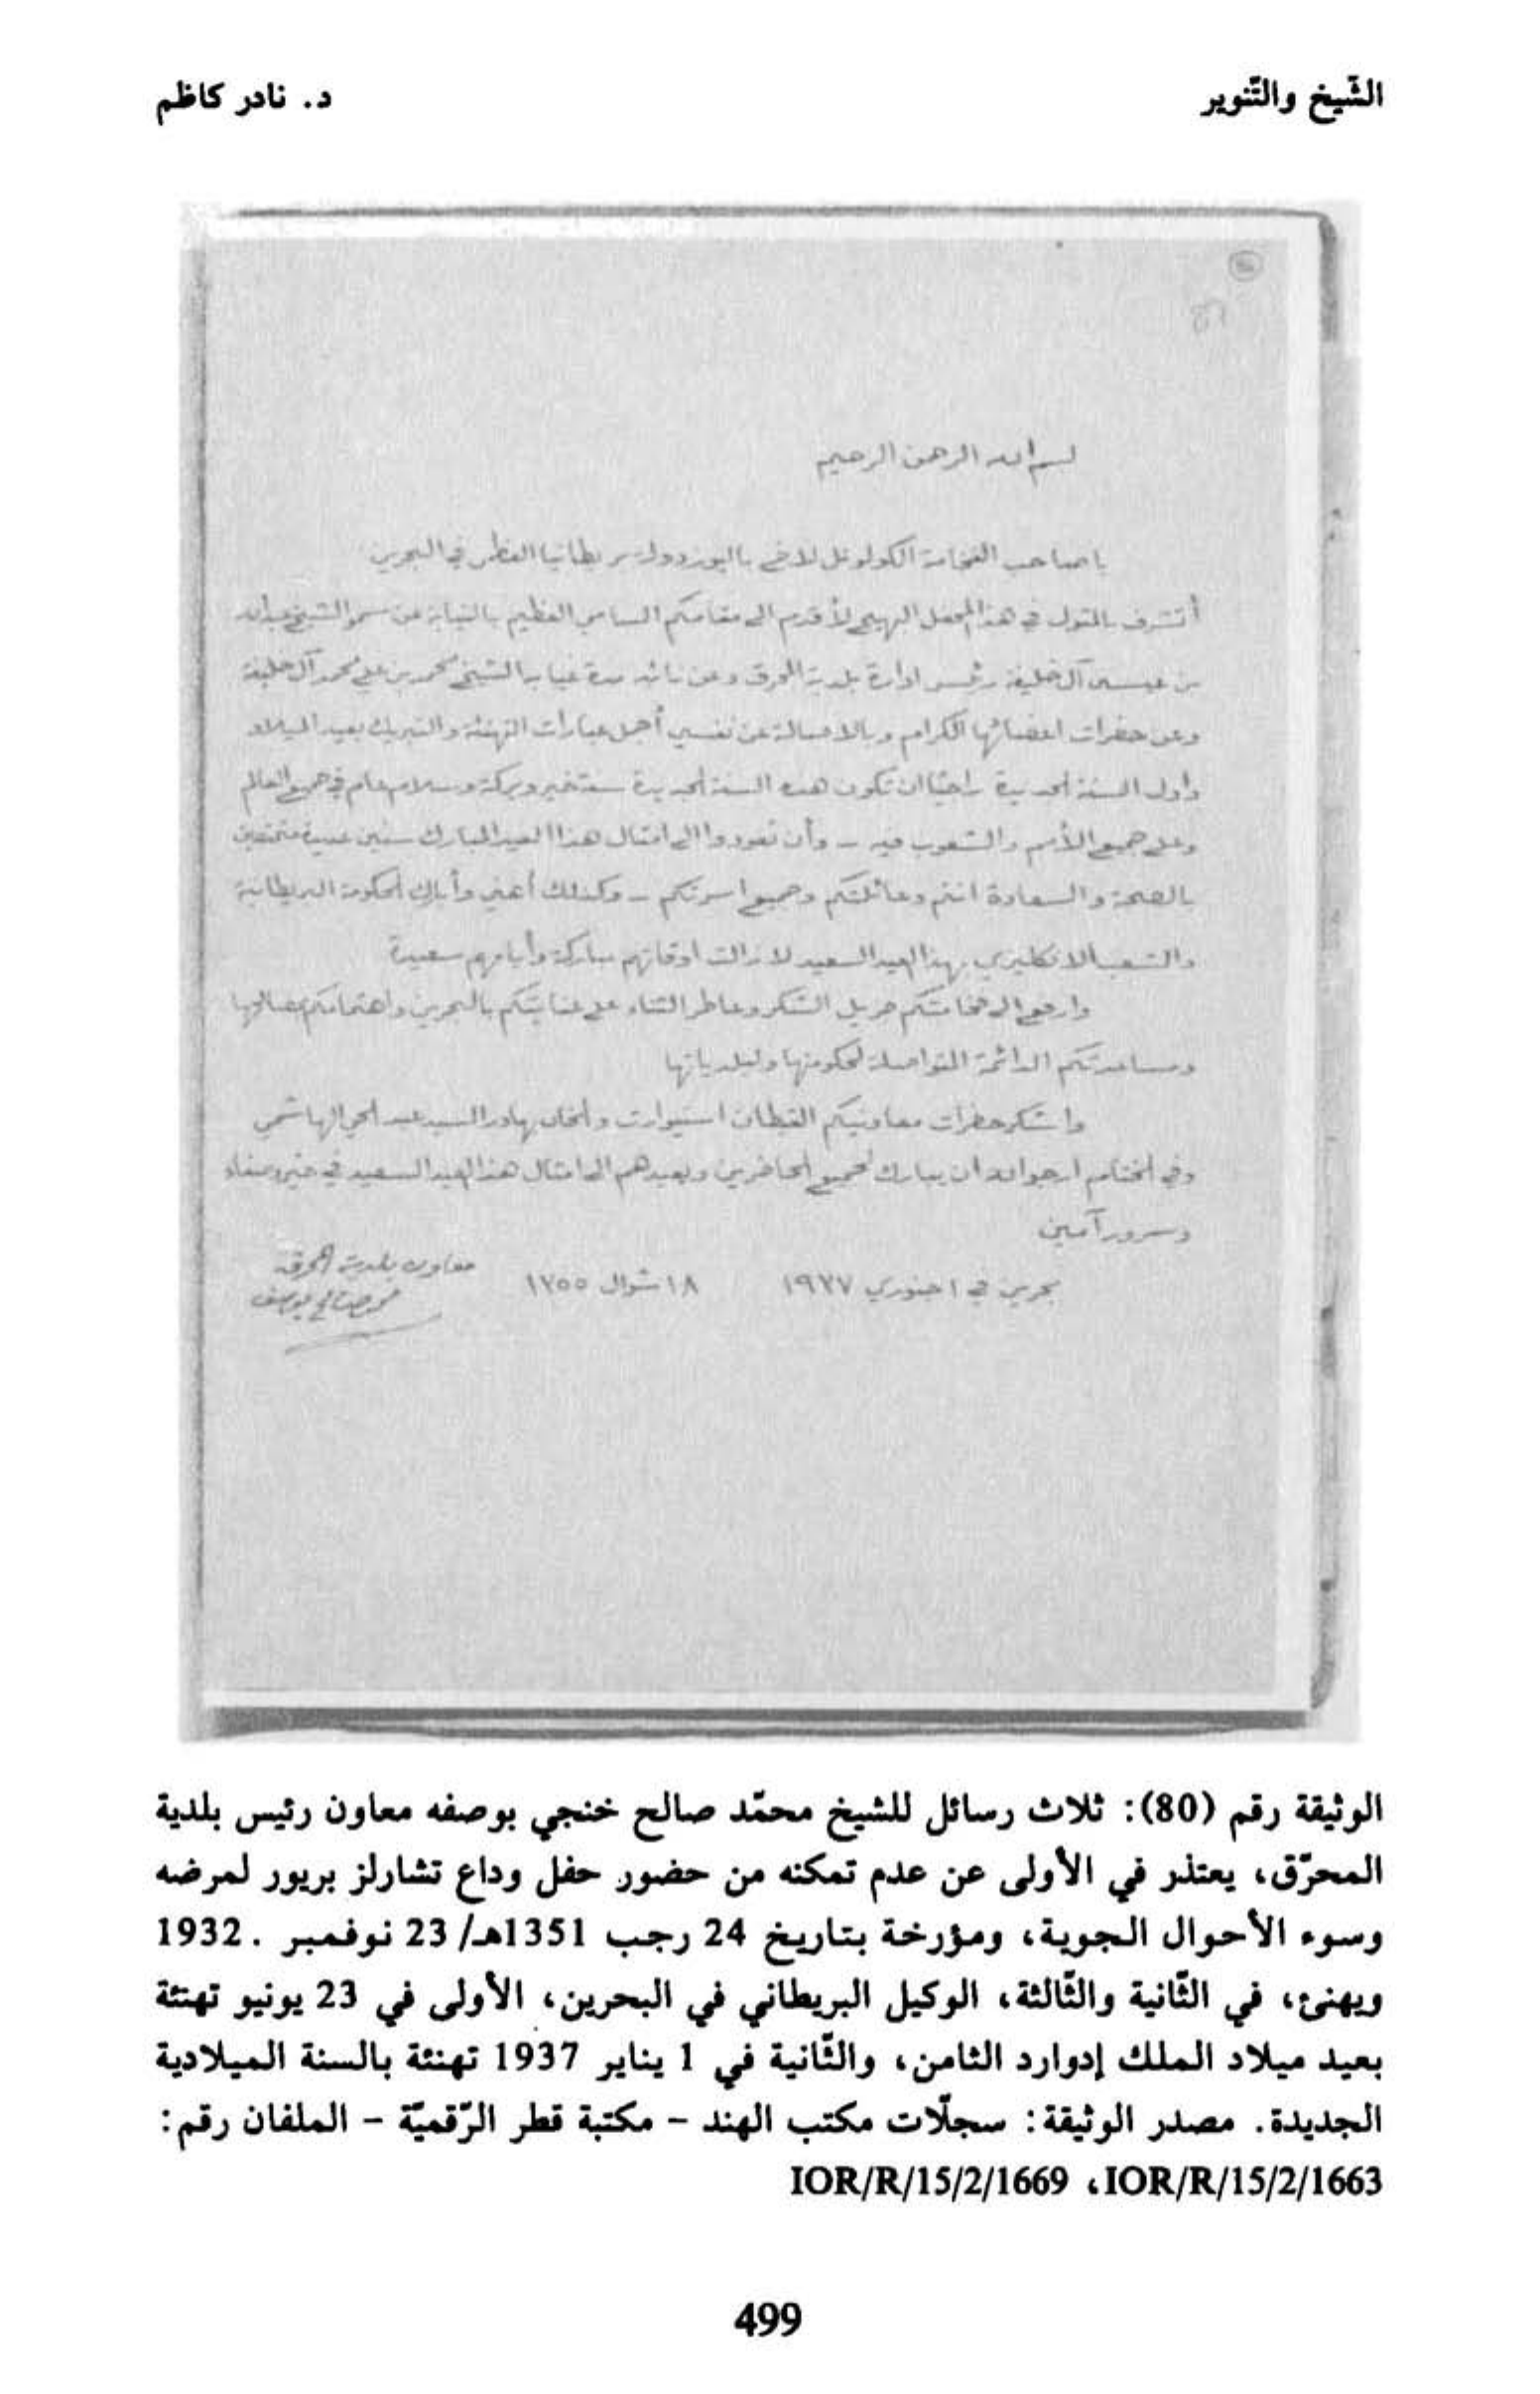 الشّيخ والتّنوير
د. نادر كاظم
بسم الله الرحمن الرحيم
يا صاحب الفخامة الكولونل لاخ باليوز دولة بريطانيا العظمى في البحرين
أتشرف بالمثول في هذا المحفل البهيج لأقدم الى مقامكم السامي العظيم بالنيابة عن سمو الشيخ عبدالله
بن عيسى آل خليفة رئيس ادارة بلدية المحرق وعن نائبه مدة غيابه الشيخ محمد بن علي محمد آل خليفة
وعن حضرات اعضائها الكرام وبالاصالة عن نفسي أجمل عبارات التهنئة والتبريك بعيد الميلاد
وأول السنة الجديدة راجيًا ان تكون هذه السنة الجديدة سنة خير وبركة وسلام عام في جميع العالم
وعلى جميع الأمم والشعوب فيه – وأن تعودوا الى امثال هذا العيد المبارك سنين عديدة متمتعين
بالصحة والسعادة انتم وعائلتكم وجميع اسرتكم – وكذلك أهني وأبارك الحكومة البريطانية
والشعب الانكليزي بهذا العيد السعيد لا زالت اوقاتهم مباركة وأيامهم سعيدة
وارفع الى فخامتكم جزيل الشكر وعاطر الثناء على عنايتكم بالبحرين واهتمامكم بمصالحها
ومساعدتكم الدائمة المتواصلة لحكومتها ولبلدياتها
واشكر حضرات معاونيكم القبطان استيوارت والخان بهادر السيد عبد الحي الهاشمي
وفي الختام ارجو الله ان يبارك لجميع الحاضرين ويعيدهم الى امثال هذا العيد السعيد في خير وصفاء
وسرور آمين
بحرين في ١ جنوري ١٩٣٧ ١٨ شوال ١٣٥٥ معاون بلدية المحرق
محمد صالح يوسف
الوثيقة رقم (80): ثلاث رسائل للشيخ محمّد صالح خنجي بوصفه معاون رئيس بلدية
المحرّق، يعتذر في الأولى عن عدم تمكنه من حضور حفل وداع تشارلز بريور لمرضه
وسوء الأحوال الجوية، ومؤرخة بتاريخ 24 رجب 1351هـ/ 23 نوفمبر .1932
ويهنئ، في الثّانية والثّالثة، الوكيل البريطاني في البحرين، الأولى في 23 يونيو تهنئة
بعيد ميلاد الملك إدوارد الثامن، والثّانية في 1 يناير 1937 تهنئة بالسنة الميلادية
الجديدة. مصدر الوثيقة: سجلّات مكتب الهند – مكتبة قطر الرّقميّة – الملفان رقم:
IOR/R/15/2/1669 ،IOR/R/15/2/1663
499